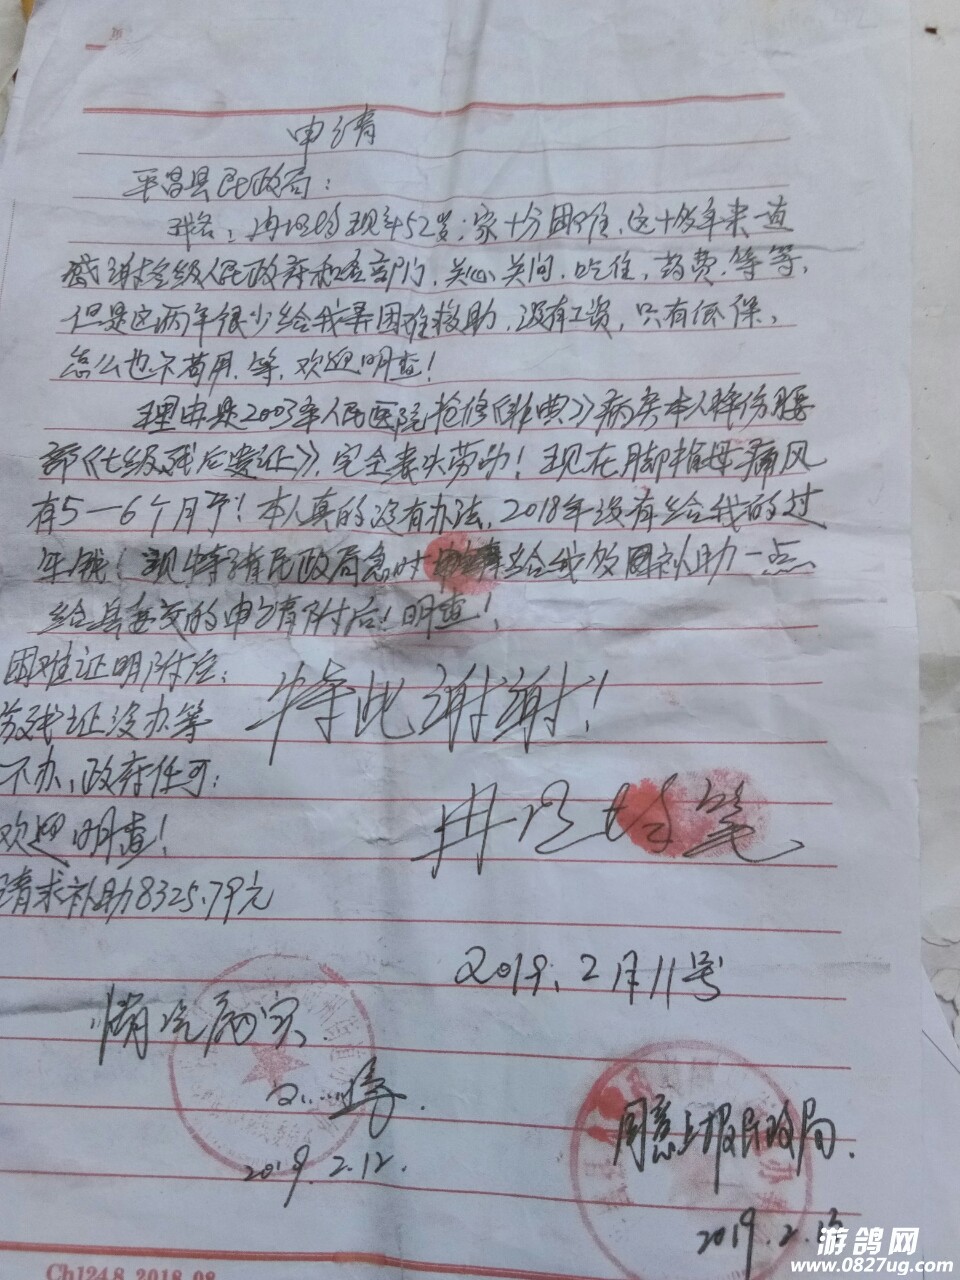 申请
平昌县民政局：
我名：冉 现年52岁，家十分困难，这十多年来一直
感谢各级人民政府和各部门，关心关问，吃住，药费，等等，
但是这两年很少给我弄困难救助，没有工资，只有低保，
怎么也不够用，等，欢迎明查！
理由是2003年人民医院抢修《非典》病房本人摔伤腰
部《七级残后遗证》，完全丧失劳动！现在脚拇母痛风
有5—6个月于！本人真的没有办法，2018年没有给我的过
年钱！现特请民政局急时 给我多困补助一点
给县委交的申请附后！明查！
困难证明附后：
残证没办等
不办，政府任可：
欢迎明查！
请求补助8325.79元
特此谢谢！
冉 笔
2019.2月11号
情况属实
2019.2.12.
同意上报民政局.
2019.2.
Ch124.8 2018.08
游鸽网
www.0827ug.com